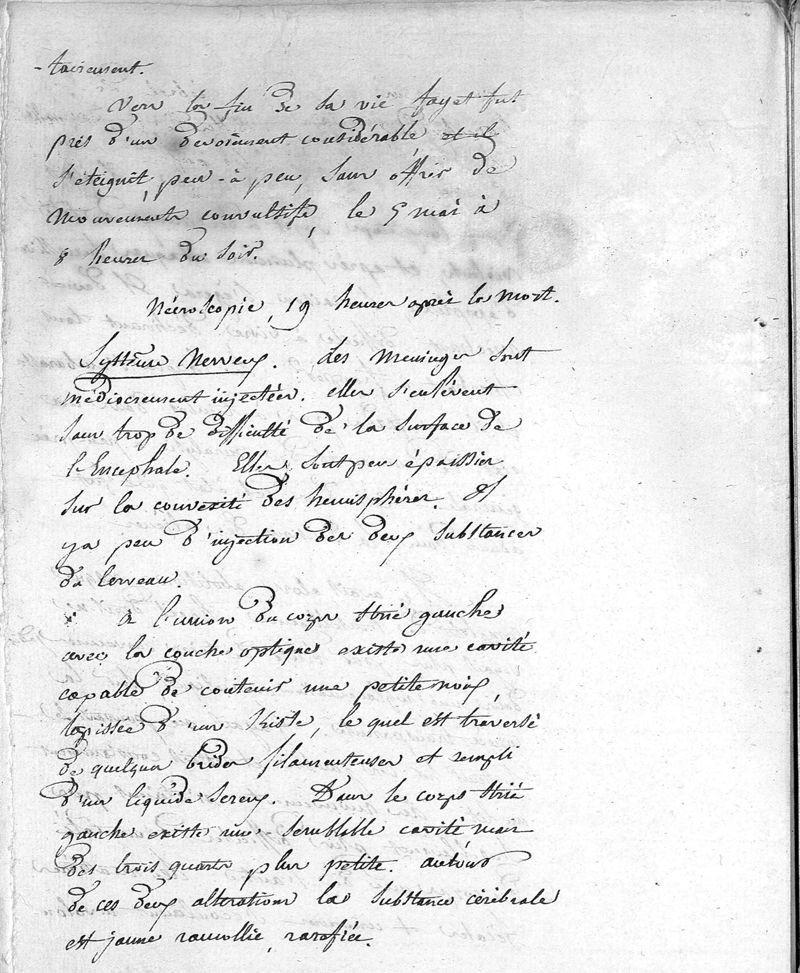 -tairement.
Vers la fin de sa vie fayet fut
pris d'un devoiement considérable, et il
s'éteignit, peu-à-peu, sans offrir de
mouvements convulsifs, le 5 mai à
8 heures du soir.
Nécroscopie, 19 heures après la mort.
Système Nerveux. Les meninges sont
médiocrement injectées. elles s'enlèvent
sans trop de difficulté de la surface de
l'Encephale. Elles sont peu épaissies
sur la convexité des hemisphères. Il
y a peu d'injection des deux substances
du Cerveau.
A l'union du corps strié gauche
avec la couche optique existe une cavité
capable de contenir une petite noix,
tapissée d'un Kiste, le quel est traversé
de quelques brides filamenteuses et rempli
d'un liquide sereux. Dans le corps strié
gauche existe une semblable cavité mais
des trois quarts plus petite. autour
de ces deux alterations la substance cérébrale
est jaune ramollie, rarefiée.